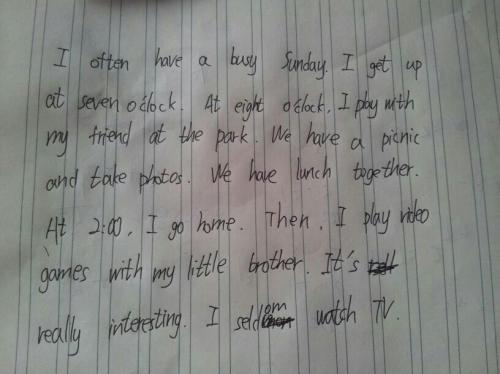 I often have a busy Sunday. I get up
at seven o'clock. At eight o'clock, I play with
my friend at the park. We have a picnic
and take photos. We have lunch together.
At 2:00, I go home. Then, I play video
games with my little brother. It's
really interesting. I seldom watch TV.